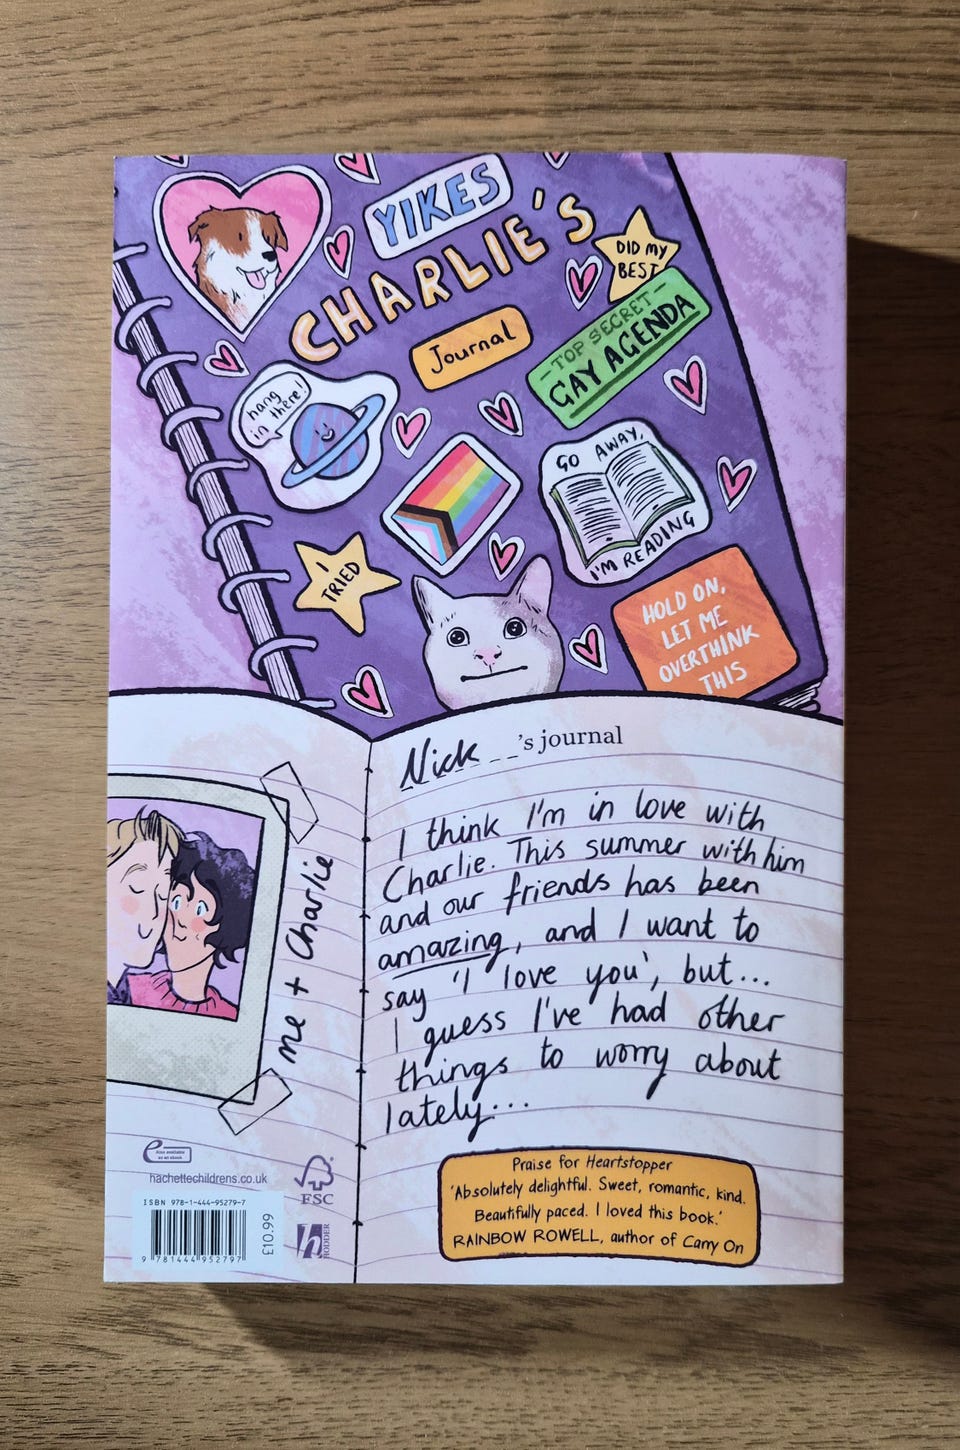 YIKES
CHARLIE'S
Journal
DID MY
BEST
-TOP SECRET-
GAY AGENDA
hang
in there!
GO AWAY,
I'M READING
I
TRIED
HOLD ON,
LET ME
OVERTHINK
THIS
Nick's journal
I think I'm in love with
Charlie. This summer with him
and our friends has been
amazing, and I want to
say 'I love you', but...
I guess I've had other
things to worry about
lately...
me + Charlie
Praise for Heartstopper
'Absolutely delightful. Sweet, romantic, kind.
Beautifully paced. I loved this book.'
RAINBOW ROWELL, author of Carry On
e
Also available
as an ebook
hachettechildrens.co.uk
FSC
ISBN 978-1-444-95279-7
9 781444 952797
£10.99
h
HODDER